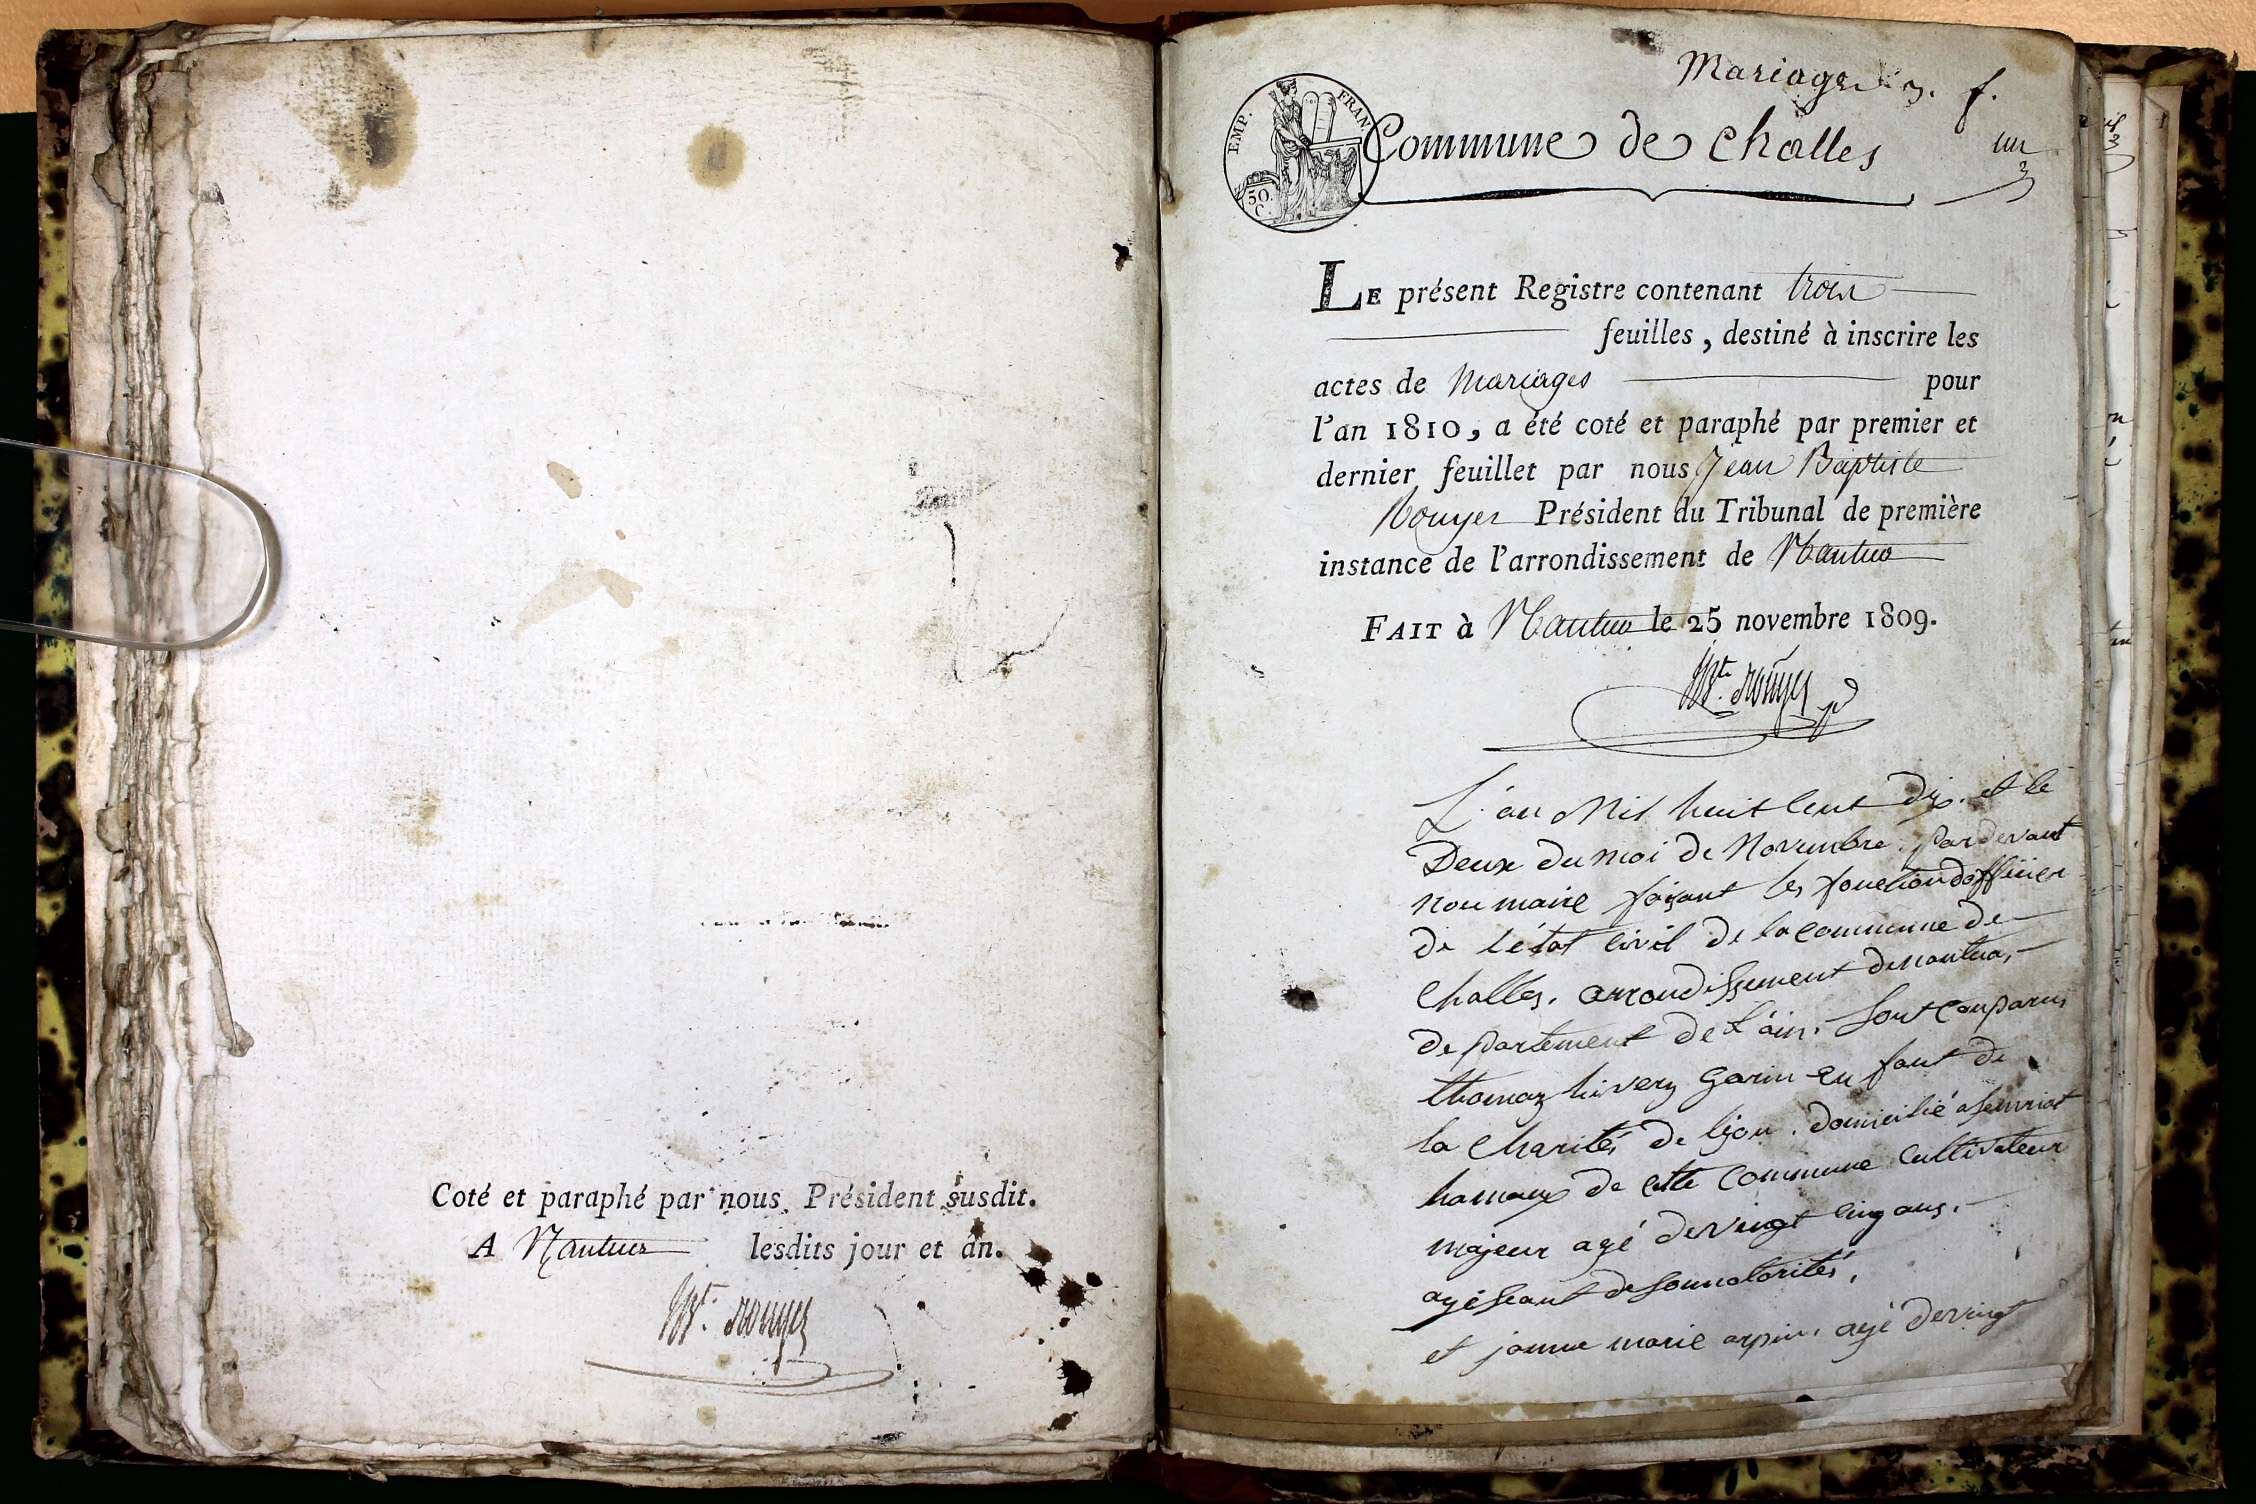 Coté et paraphé par nous, Président susdit.
A Nantua lesdits jour et an.
Bte. rouyer
Mariages 3. f.
EMP. FRAN.
50. C.
Commune de Challes
un
LE présent Registre contenant trois
feuilles, destiné à inscrire les
actes de Mariages pour
l'an 1810, a été coté et paraphé par premier et
dernier feuillet par nous Jean Baptiste
Rouyer Président du Tribunal de première
instance de l'arrondissement de Nantua
FAIT à Nantua le 25 novembre 1809.
Bte. rouyer
L'an Mil huit Cent dix. et le
Deux du moi de Novembre. par devant
nou maire faisant les fonction d'officier
de l'état Civil de la commune de
Challes. arrondissement de nantua,
departement de l'ain. Sont Comparus
thomas hivery garin enfant de
la Charités de lion. domicilié a
hameaux de cette Commune Cultivateur
majeur agé de vingt cinq ans.
agiseant de son notorités,
et janne marie arpin. agé de vingt